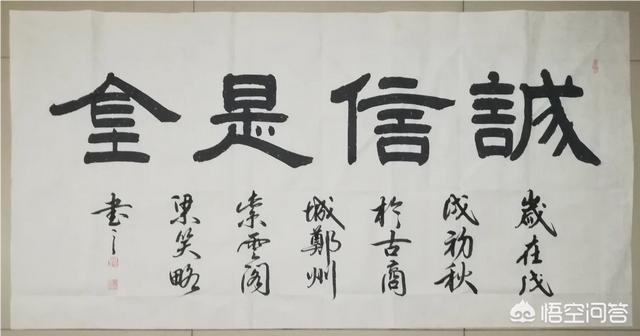 誠信是金
歲在戊
戌初秋
於古商
城鄭州
紫雲閣
梁笑略
書之
悟空问答